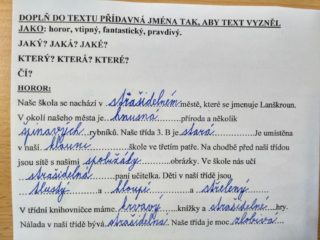 DOPLŇ DO TEXTU PŘÍDAVNÁ JMÉNA TAK, ABY TEXT VYZNĚL
JAKO: horor, vtipný, fantastický, pravdivý.
JAKÝ? JAKÁ? JAKÉ?
KTERÝ? KTERÁ? KTERÉ?
ČÍ?
HOROR:
Naše škola se nachází v strašidelném městě, které se jmenuje Lanškroun.
V okolí našeho města je hnusná příroda a několik
špinavých rybníků. Naše třída 3. B je stará. Je umístěna
v naší škole ve třetím patře. Na chodbě před naší třídou
jsou sítě s našimi obrázky. Ve škole nás učí
strašidelná paní učitelka. Děti v naší třídě jsou
tlustý a hloupí a
V třídní knihovničce máme krvavý knížky a strašidelné hry.
Nálada v naší třídě bývá strašidelná. Naše třída je moc zlobivá.